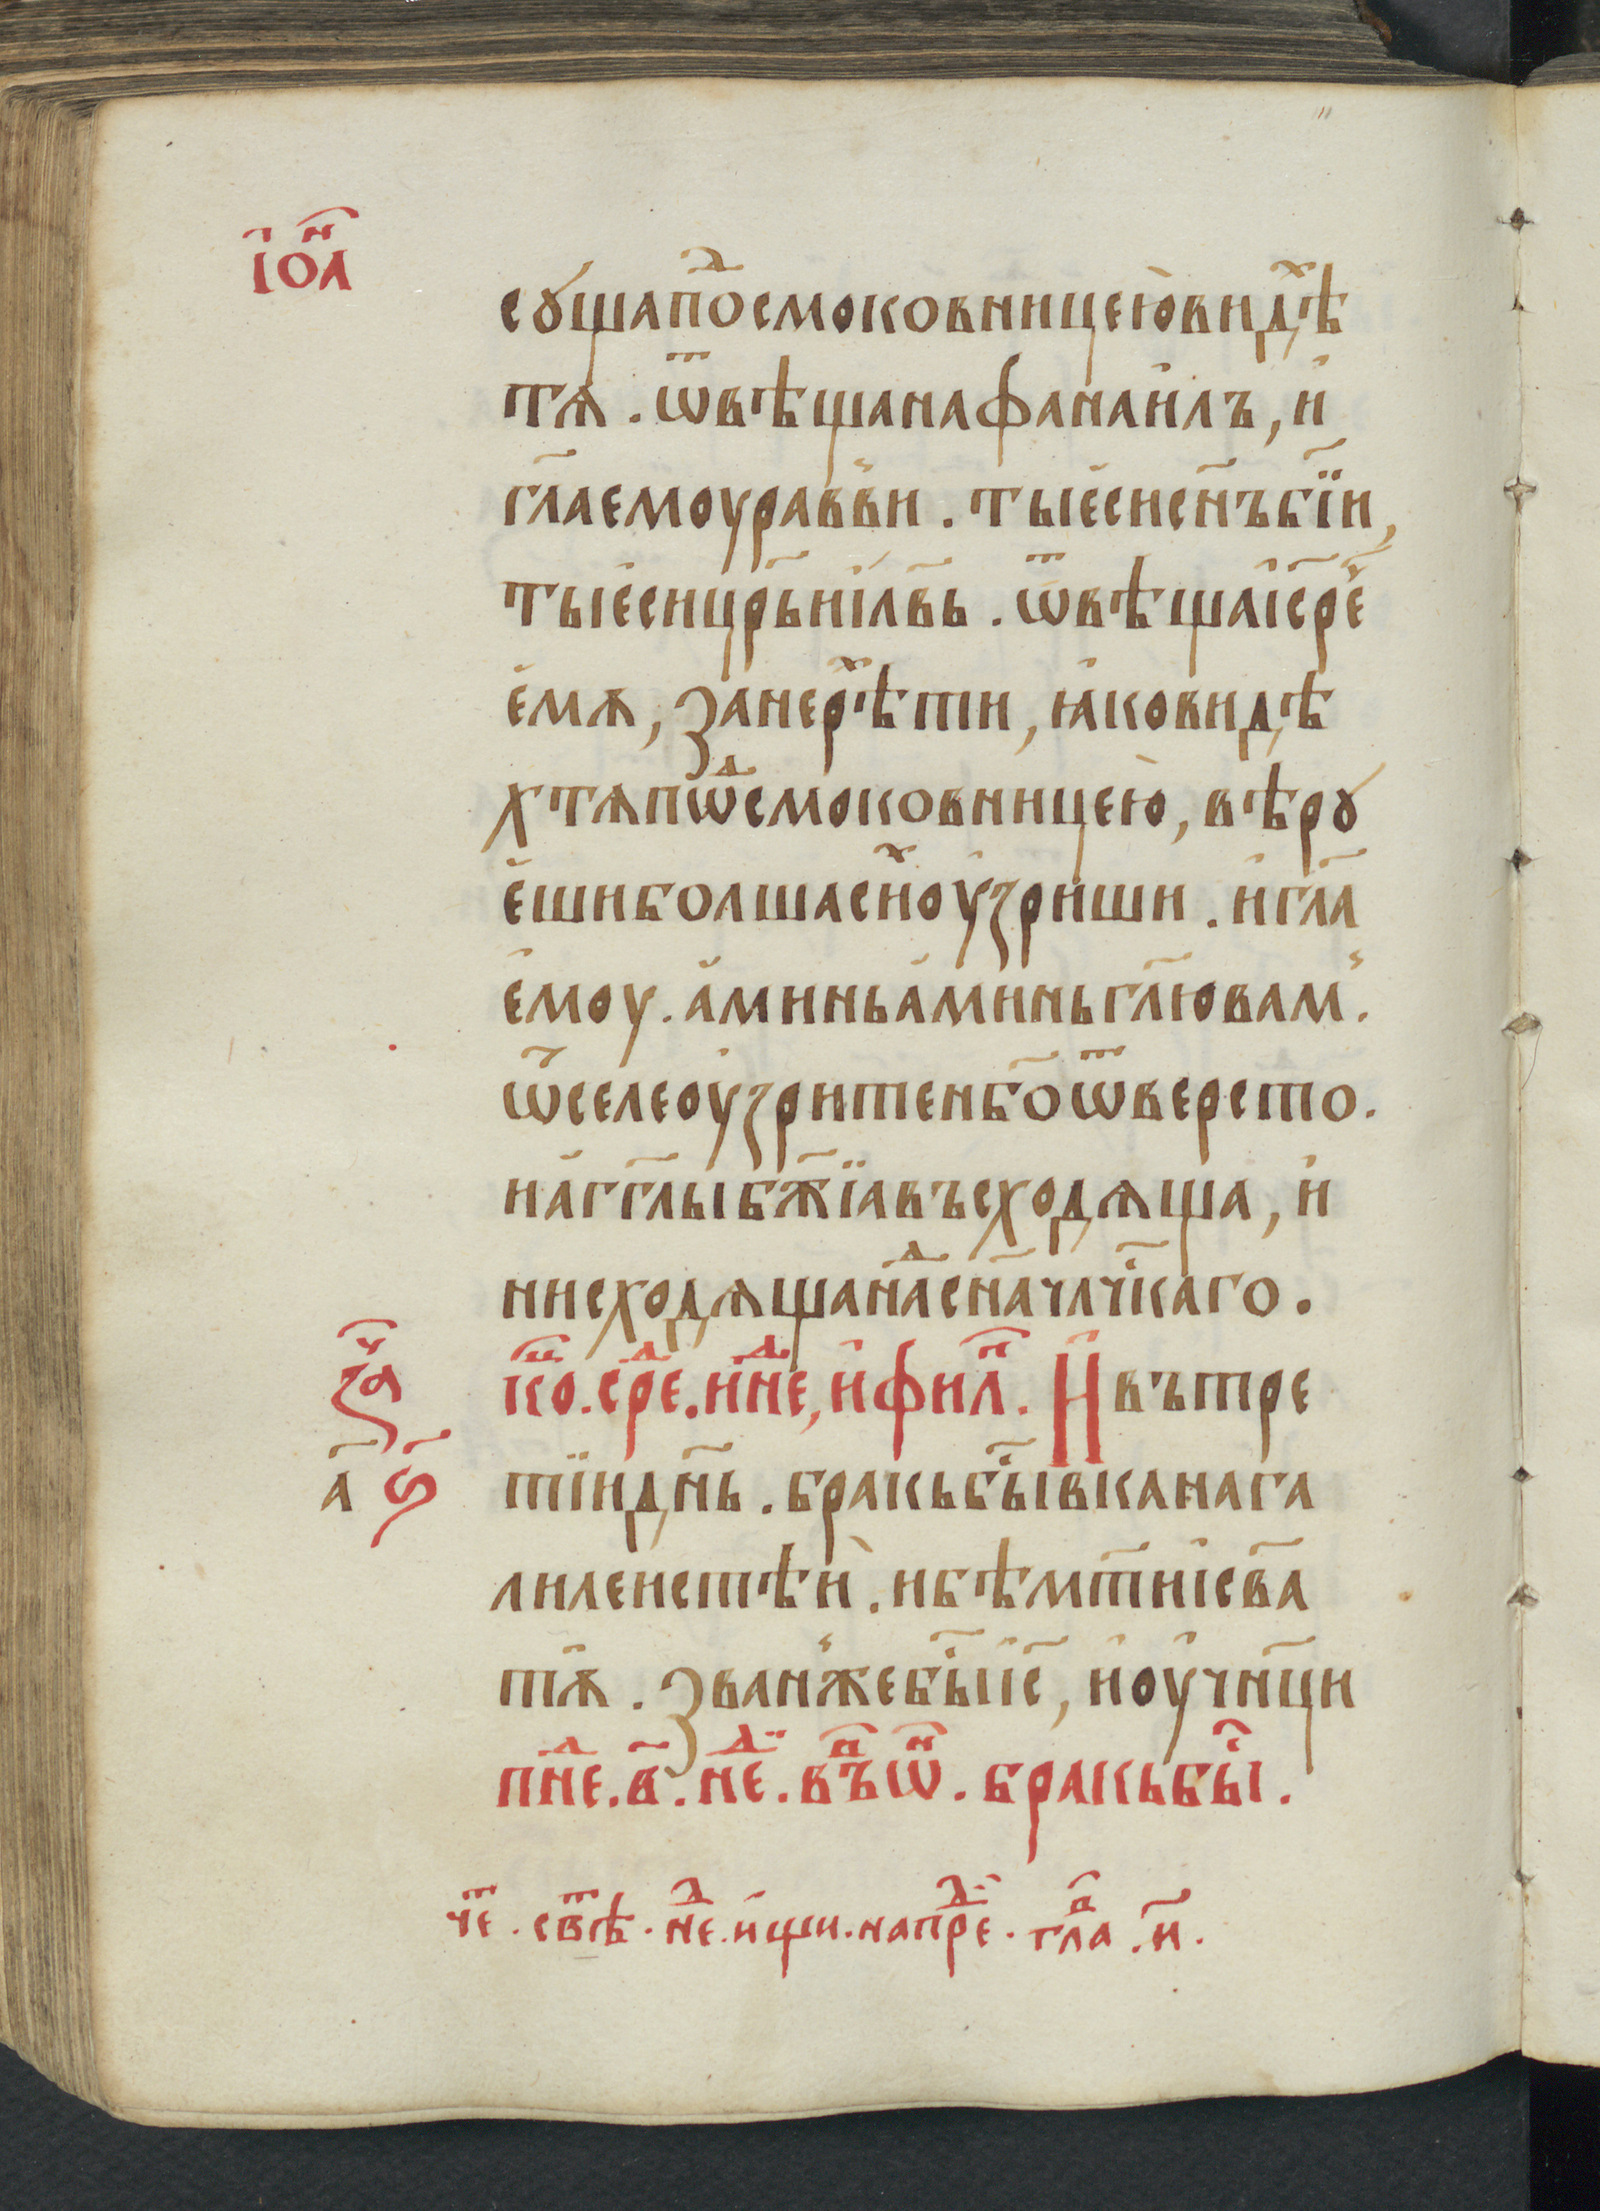 і҆ѻⷩ҇л
сꙋщапоⷣсмоковницею̀видѣⷯ
тѧ . ѿвѣщанафанаи́лъ, и҆
гл҃аемоураввⸯи . тыє҆сисн҃ъбж҃їи,
тыє҆сицр҃ьиі҆л҃вь . ѿвѣщаі҆с҃рє҆ⷱ
є҆мѧ, занерѣⷯти, ꙗ҆ковидѣ
хтѧпѡⷣсмоковницею̀, вѣрꙋ
є҆шиболшасиⷯоу҆зриши . и҆гл҃а
є҆моу . а҆миньа҆миньгл҃ювамⸯ .
ѿселеоу҆зритенб҃оѿверсто .
иа҆гг҃лыбж҃їавъсходѧща, и҆
нисходѧщанаⷣсн҃ачл҃чⷭ҇каго .
коⷩ҇ . среⷣ . инеⷣ, и҆филиⷫ . И҆вътре
тїидн҃ь . бракьбыⷭ҇вканага
лилеистѣѝ . ибѣмт҃иі҆св҃а
тꙋ҆ . званⸯжебыⷭ҇і҆с҃, и҆оу҆чн҃ци
пнеⷣ . в҃ . неⷣ . въⷨѡⷩ . бракьбыⷭ҇ .
чеⷮ . свѣⷮ . неⷣ . и҆щи . напреⷣ . глаⷡ . и҃ .
заⷱ
а҃ ѕ҃